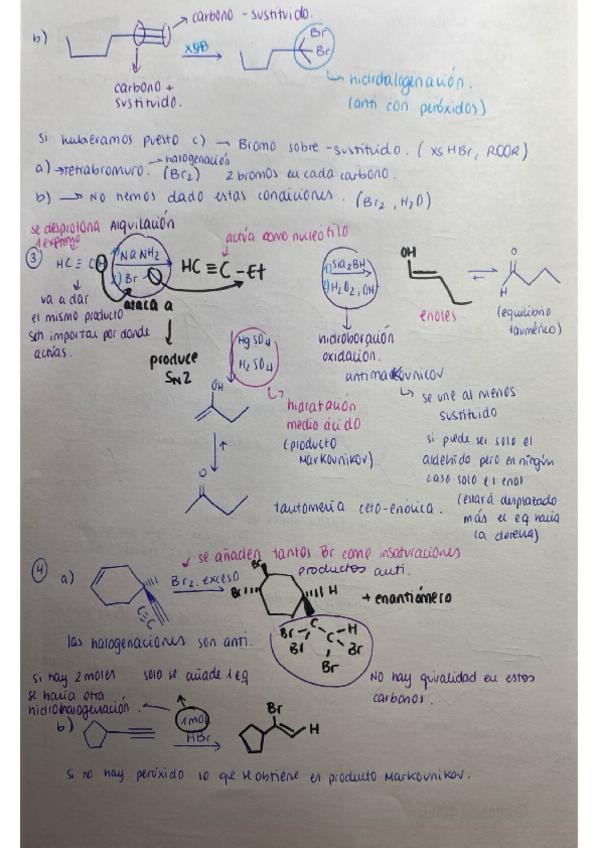 carbono - sustituido.
b)
XSB
Br
Br
hidrohalogenación.
(anti con peróxidos)
carbono +
sustituido.
si hubiéramos puesto c) → Bromo sobre -sustituido. ( xs HBr, ROOR)
halogenación
a) → tetrabromuro. (Br2) 2 bromos en cada carbono.
b) → No hemos dado estas condiciones. (Br2, H2O)
se desprotona Alquilación
1 extremo
actúa como nucleófilo
3 HC ≡ CH
1) NaNH2
2) Br
HC ≡ C - Et
1) Sia2BH
2) H2O2, OH
OH
O
H
enoles
(equilibrio
tautomérico)
va a dar
el mismo producto
sin importar por donde
actúas.
ataca a
produce
SN2
HgSO4
H2SO4
hidroboración
oxidación.
antimarkovnicov
se une al menos
sustituido
OH
hidratación
medio ácido
(producto
Markovnikov)
si puede ser solo el
aldehído pero en ningún
caso solo el enol
(estará desplazado
más el eq hacia
la derecha)
O
tautomería ceto-enólica.
se añaden tantos Br como insaturaciones
4 a)
Br2. exceso
productos anti.
Br
Br
H
+ enantiómero
C≡C
C - C - H
Br
Br
Br
Br
las halogenaciones son anti.
si hay 2 moles solo se añade 1 eq
se haría otra
hidrohalogenación.
No hay quiralidad en estos
carbonos.
b)
1 mol
HBr
Br
H
si no hay peróxido lo que se obtiene es producto Markovnikov.